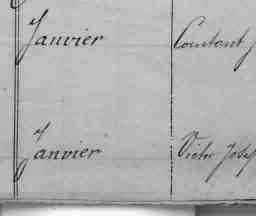 Janvier Constant
Janvier Victor Josep